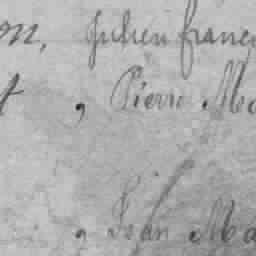 on, Julien franç
t , Pierre Ma
, Jean Ma